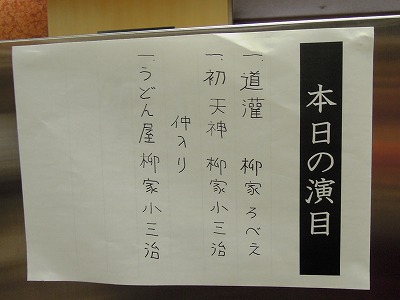 本日の演目
一、道灌 柳家ろべえ
一、初天神 柳家小三治
仲入り
一、うどん屋 柳家小三治